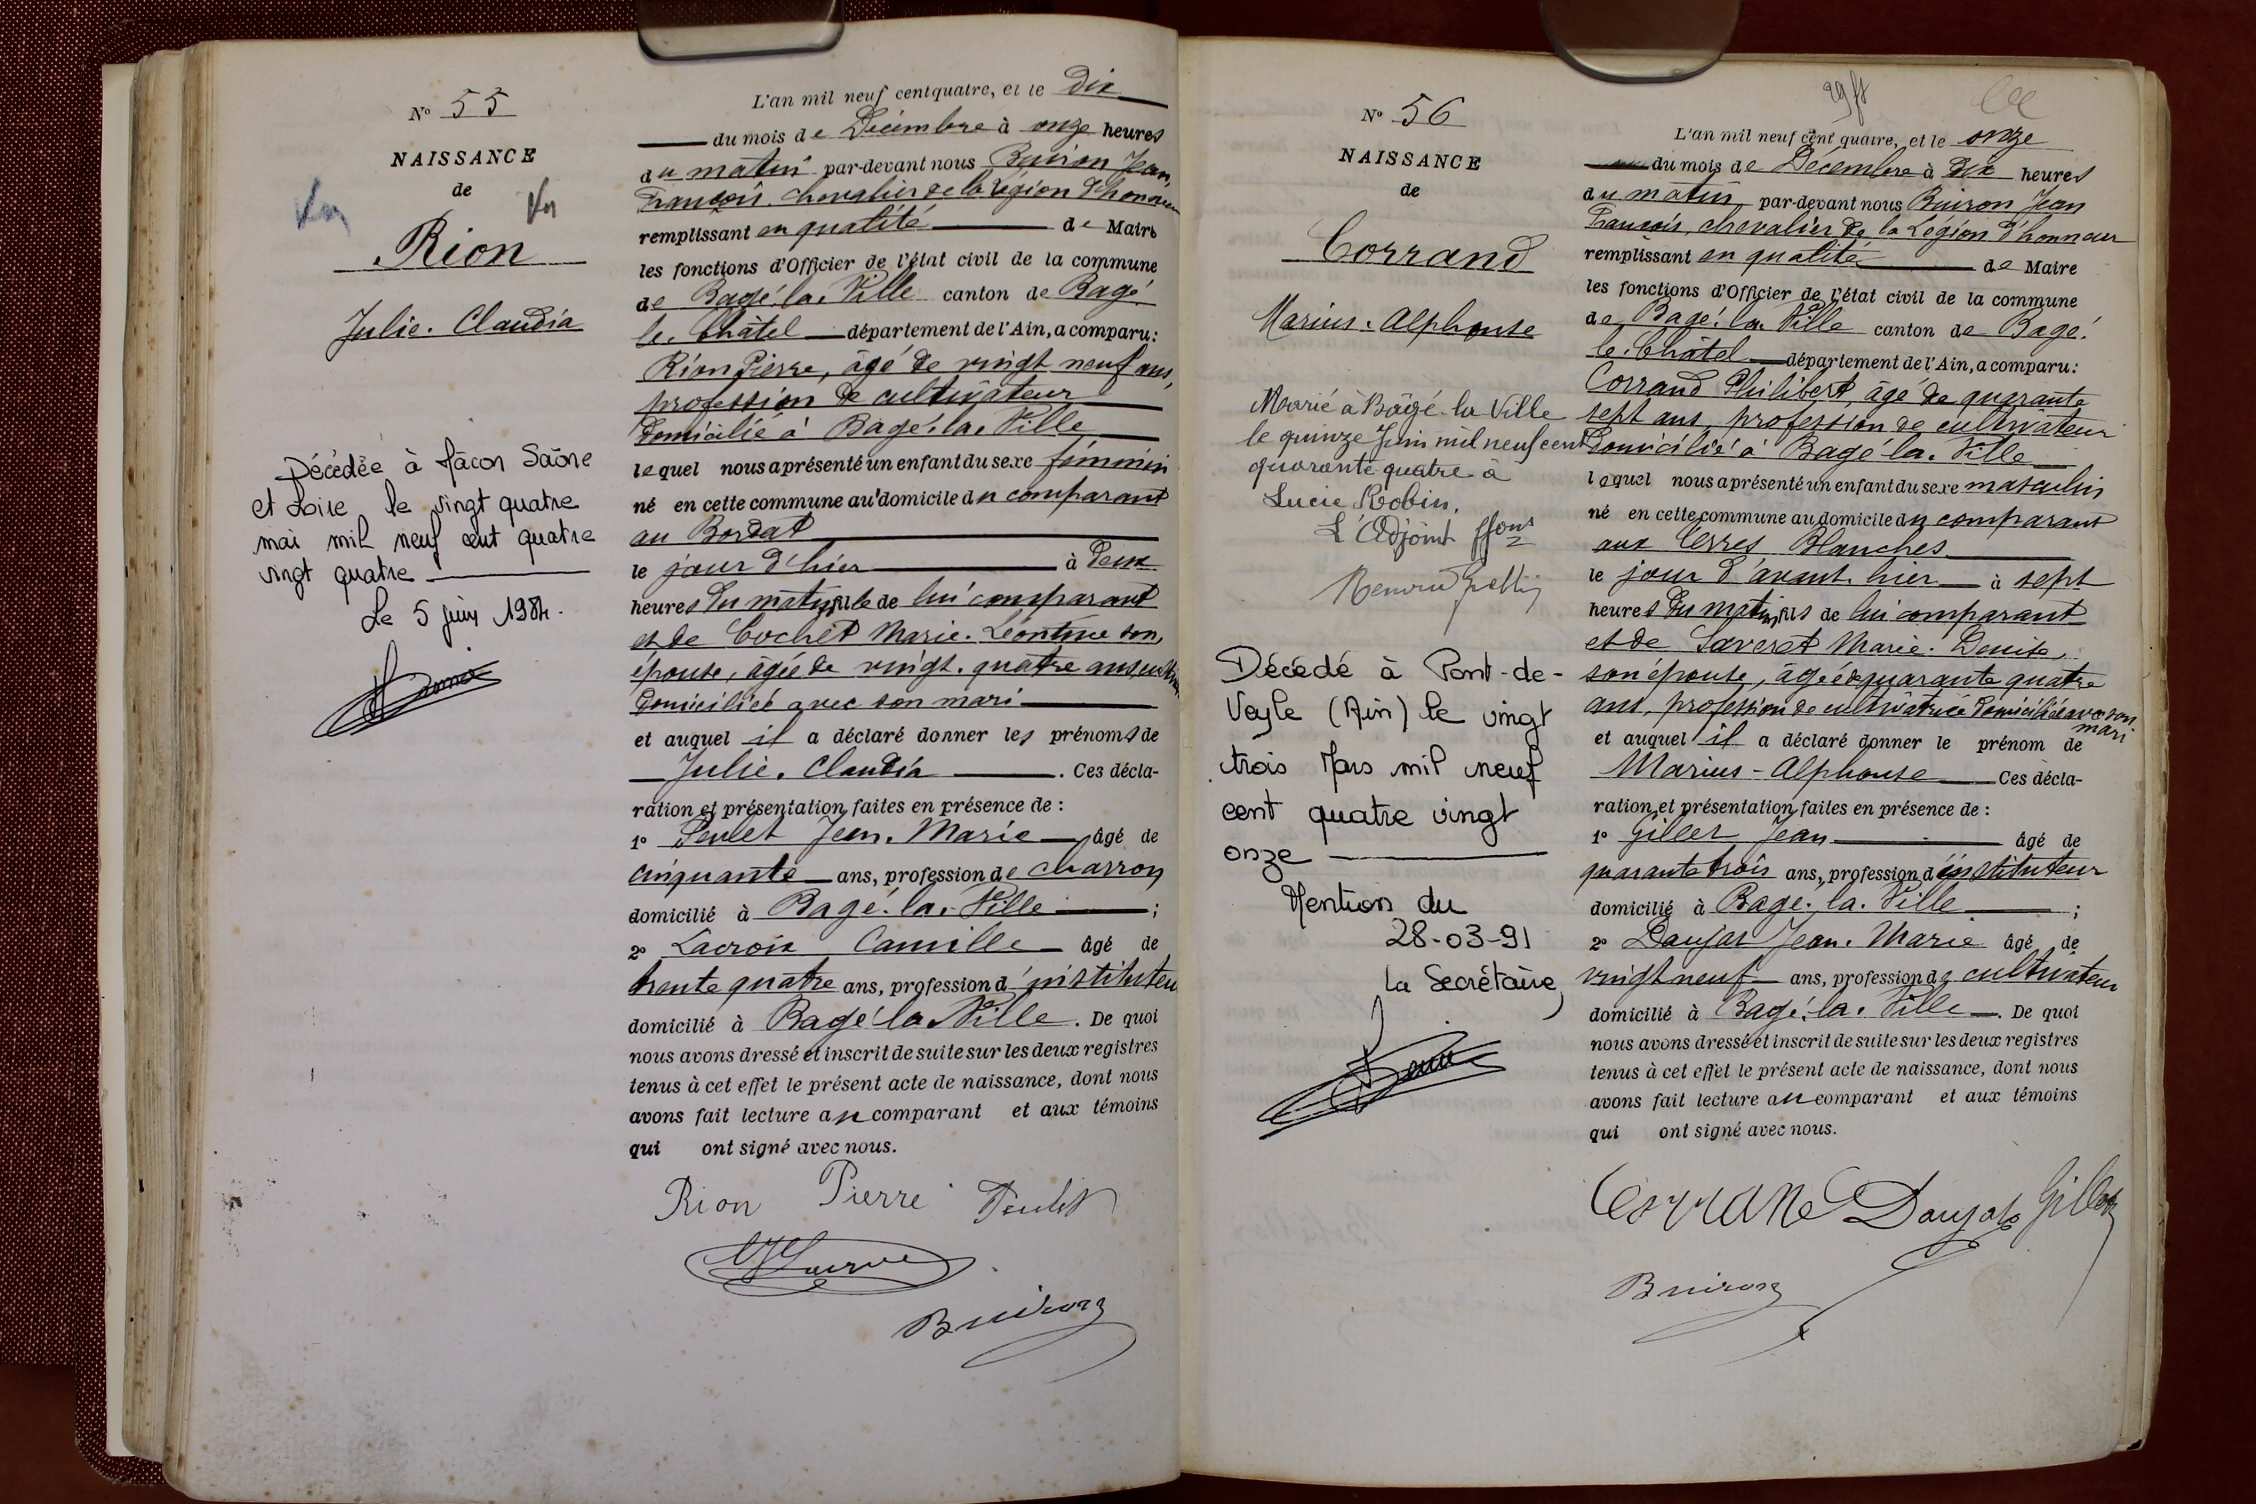 Nº 55
NAISSANCE
de
Rion
Julie. Claudia
Décédée à Mâcon Saône
et Loire le vingt quatre
mai mil neuf cent quatre
vingt quatre
Le 5 juin 1984.
L'an mil neuf cent quatre, et le Dix
du mois de Décembre à onze heures
du matin par-devant nous Buiron Jean,
François. chevalier de la Légion d'honneur
remplissant en qualité de Maire
les fonctions d'Officier de l'état civil de la commune
de Bagé. la. Ville canton de Bagé
le. Châtel département de l'Ain, a comparu:
Rion Pierre, âgé de vingt neuf ans,
profession de cultivateur
domicilié à Bagé. la. Ville
lequel nous a présenté un enfant du sexe féminin
né en cette commune au domicile du comparant
au Bordat
le jour d'hier à Deux
heures du matin, fille de lui comparant
et de Cochet Marie. Léontine son,
épouse, âgée de vingt. quatre ans,
domiciliée avec son mari
et auquel il a déclaré donner les prénoms de
Julie. Claudia. Ces décla-
ration et présentation faites en présence de :
1º Poulet Jean. Marie âgé de
cinquante ans, profession de charron
domicilié à Bagé. la. Ville ;
2º Lacroix Camille âgé de
trente quatre ans, profession d'instituteur
domicilié à Bagé la Ville. De quoi
nous avons dressé et inscrit de suite sur les deux registres
tenus à cet effet le présent acte de naissance, dont nous
avons fait lecture au comparant et aux témoins
qui ont signé avec nous.
Rion Pierre Poulet
Lacroix
Buiron
Nº 56
NAISSANCE
de
Corrand
Marius. Alphonse
Marié à Bâgé-la Ville
le quinze Juin mil neuf cent
quarante quatre à
Lucie Robin.
L'Adjoint ffons
Décédé à Pont-de-
Veyle (Ain) le vingt
trois Mars mil neuf
cent quatre vingt
onze
Mention du
28-03-91
La Secrétaire,
L'an mil neuf cent quatre, et le onze
du mois de Décembre à Dix heures
du matin, par-devant nous Buiron Jean
François, chevalier de la Légion d'honneur
remplissant en qualité de Maire
les fonctions d'Officier de l'état civil de la commune
de Bagé. la. Ville canton de Bagé.
le. Châtel département de l'Ain, a comparu:
Corrand Philibert, âgé de quarante
sept ans, profession de cultivateur
domicilié à Bagé la. Ville
lequel nous a présenté un enfant du sexe masculin
né en cette commune au domicile du comparant
aux Terres Blanches
le jour d'avant hier à sept
heures du matin, fils de lui comparant
et de Saveret Marie. Denise,
son épouse, âgée de quarante quatre
ans, profession de cultivatrice domiciliée avec son
mari
et auquel il a déclaré donner le prénom de
Marius-Alphonse Ces décla-
ration et présentation faites en présence de :
1º Giller Jean âgé de
quarante trois ans, profession d'instituteur
domicilié à Bagé. la. Ville ;
2º Daujat Jean. Marie âgé de
vingt neuf ans, profession de cultivateur
domicilié à Bagé. la. Ville. De quoi
nous avons dressé et inscrit de suite sur les deux registres
tenus à cet effet le présent acte de naissance, dont nous
avons fait lecture au comparant et aux témoins
qui ont signé avec nous.
Corrand Daujat Giller
Buiron